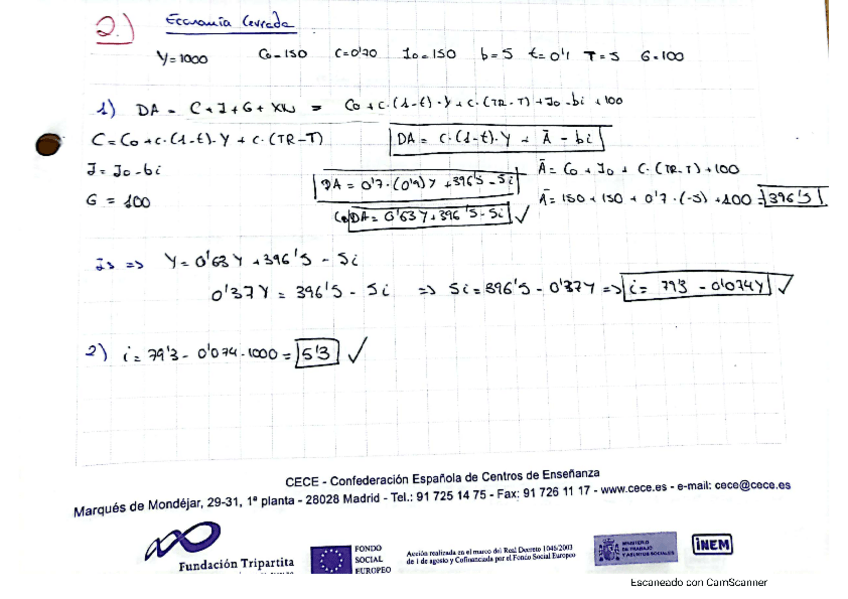 2.) Economía Cerrada
Y=1000 Co=150 C=0'70 Io=150 b=5 t=0'1 T=5 G=100
1) DA = C+I+G+XN = Co+c·(1-t)·Y+c·(TR-T)+Io-bi+100
C=Co+c·(1-t)·Y+c·(TR-T) DA = c·(1-t)·Y + Ā - bi
I=Io-bi DA = 0'7·(0'9)Y+396'5-5i Ā = Co + Io + c·(TR-T)+100
G = 100 DA=0'63Y+396'5-5i ✓ Ā=150+150+0'7·(-5)+100=396'5
Is => Y=0'63Y+396'5-5i
0'37Y=396'5-5i => 5i=396'5-0'37Y => i= 79'3-0'074Y ✓
2) i=79'3-0'074·1000=5'3 ✓
CECE - Confederación Española de Centros de Enseñanza
Marqués de Mondéjar, 29-31, 1ª planta - 28028 Madrid - Tel.: 91 725 14 75 - Fax: 91 726 11 17 - www.cece.es - e-mail: cece@cece.es
Fundación Tripartita
FONDO
SOCIAL
EUROPEO
Acción realizada en el marco del Real Decreto 1046/2003
de 1 de agosto y Cofinanciada por el Fondo Social Europeo
MINISTERIO
DE TRABAJO
Y ASUNTOS SOCIALES
INEM
Escaneado con CamScanner